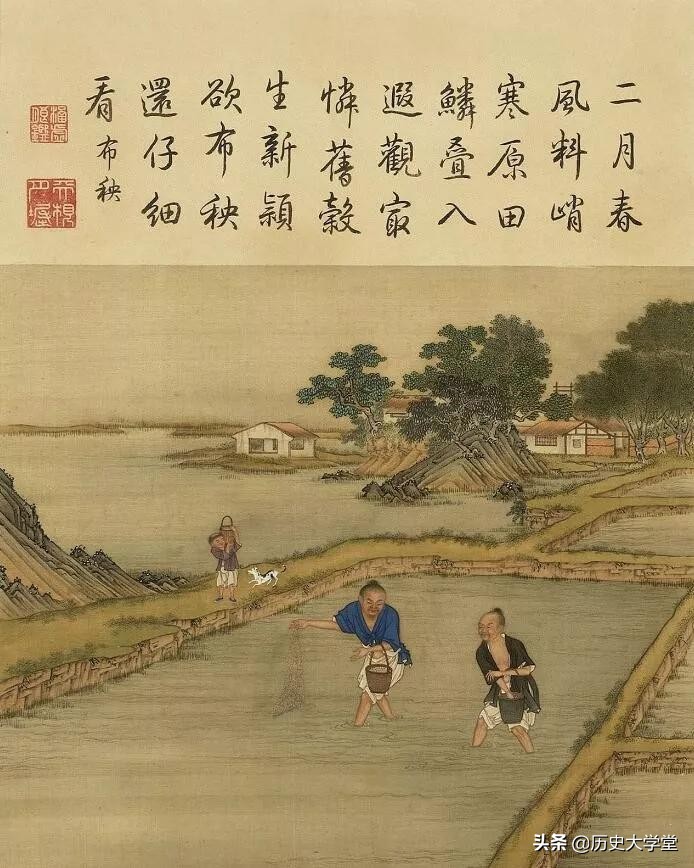 二月春
風料峭
寒原田
鱗疊入
遐觀㝡
憐舊穀
生新穎
欲布秧
還仔細
看 布秧
头条 @历史大学堂